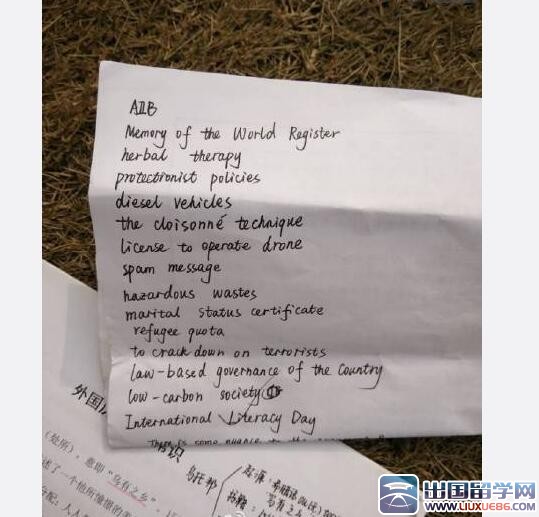 AIIB
Memory of the World Register
herbal therapy
protectionist policies
diesel vehicles
the cloisonné technique
license to operate drone
spam message
hazardous wastes
marital status certificate
refugee quota
to crack down on terrorists
law-based governance of the Country
low-carbon society
International Literacy Day
There is some nuance
外国
识
(处所),意即"乌有之乡",
述了一个他所憧憬的美
配:人人
乌托邦
起源:
书籍:
出国留学网
WWW.LIUXUE86.COM